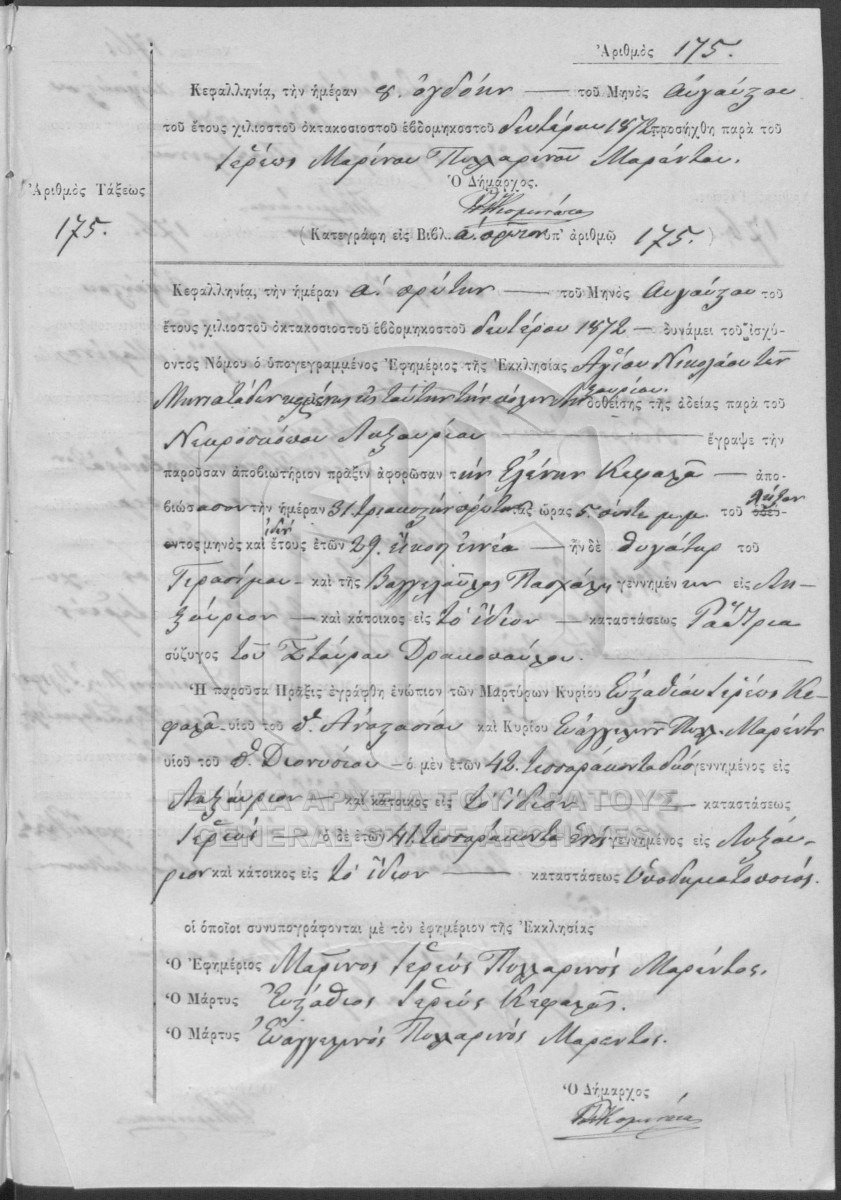 Ἀριθμὸς 175.
Κεφαλληνίᾳ, τὴν ἡμέραν 8. ὀγδόην — τοῦ Μηνὸς Αὐγούστου
τοῦ ἔτους χιλιοστοῦ ὀκτακοσιοστοῦ ἑβδομηκοστοῦ δευτέρου 1872 προσήχθη παρὰ τοῦ
Ἱερέως Μαρίνου Πυλλαρινοῦ Μαρέντου.
Ὁ Δήμαρχος.
Ἀριθμὸς Τάξεως
175.
(Κατεγράφη εἰς Βιβλ. α. πρῶτον ὑπ' ἀριθμῷ 175.)
Κεφαλληνίᾳ, τὴν ἡμέραν α. πρώτην — τοῦ Μηνὸς Αὐγούστου τοῦ
ἔτους χιλιοστοῦ ὀκτακοσιοστοῦ ἑβδομηκοστοῦ δευτέρου 1872 — δυνάμει τοῦ ἰσχύ-
οντος Νόμου ὁ ὑπογεγραμμένος Ἐφημέριος τῆς Ἐκκλησίας Ἁγίου Νικολάου τῶν
Μηνιατάδων ταύτην τὴν πόλιν Ληξουρίου. δοθείσης τῆς ἀδείας παρὰ τοῦ
Νεκροσκόπου Ληξουρίου — ἔγραψε τὴν
παροῦσαν ἀποβιωτήριον πρᾶξιν ἀφορῶσαν τὴν Ἑλένην Κεφαλᾶ — ἀπο-
βιώσασαν τὴν ἡμέραν 31. τριακοστὴν πρώτην τὰς ὥρας 5. πέντε μ.μ. τοῦ λήξαν
οντος μηνὸς καὶ ἰδίου ἔτους ἐτῶν 29. εἴκοσι ἐννέα — ἦν δὲ θυγάτηρ τοῦ
Γερασίμου — καὶ τῆς Βαγγελούλας Πασχάλη γεννημένην εἰς Λη-
ξούριον — καὶ κάτοικος εἰς τὸ ἴδιον — καταστάσεως Ῥάπτρια
σύζυγος τοῦ Σταύρου Δρακοπούλου.
Ἡ παροῦσα Πρᾶξις ἐγράφθη ἐνώπιον τῶν Μαρτύρων Κυρίου Εὐσταθίου Ἱερέως Κε-
φαλᾶ υἱοῦ τοῦ π. Ἀναστασίου καὶ Κυρίου Εὐαγγελινοῦ Πυλλ. Μαρέντου
υἱοῦ τοῦ π. Διονυσίου — ὁ μὲν ἐτῶν 42. τεσσαράκοντα δύο γεννημένος εἰς
Ληξούριον — καὶ κάτοικος εἰς τὸ ἴδιον — καταστάσεως
Ἱερεύς ὁ δὲ ἐτῶν 41. τεσσαράκοντα ἑνὸς γεννημένος εἰς Ληξού-
ριον καὶ κάτοικος εἰς τὸ ἴδιον — καταστάσεως Ὑποδηματοποιός.
οἱ ὁποῖοι συνυπογράφονται μὲ τὸν ἐφημέριον τῆς Ἐκκλησίας
Ὁ Ἐφημέριος Μαρῖνος Ἱερεύς Πυλλαρινός Μαρέντος.
Ὁ Μάρτυς Εὐστάθιος Ἱερεύς Κεφαλᾶς.
Ὁ Μάρτυς Εὐαγγελινός Πυλλαρινός Μαρέντος.
Ὁ Δήμαρχος
ΓΕΝΙΚΑ ΑΡΧΕΙΑ ΤΟΥ ΚΡΑΤΟΥΣ
GENERAL STATE ARCHIVES